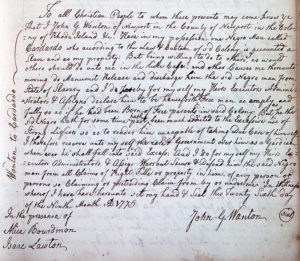 To all Christian People to whom these presents may come Know ye
that I John G Wanton of Newport in the County of Newport in the Colo=
=ny of Rhode Island &c Have in my possession one Negro Man called
Cardardo who according to the Law & Custom of sd Colony is accounted a
Slave and my property But I being willing to do to others, as I would
others should do unto me in the like Case and other Causes me thereunto
moving do Manumit Release and discharge him the sd Negro man from
State of Slavery and I do hereby for my self my Heirs Executors Admini=
=strators & Assigns declare him to be henceforth a free man as amply and
fully as if he had been Born of Free parents in sd Colony But the
sd Negro hath for some time past been much addicted to the Excessive use of
Strong Liquors so as to render him uncapable of taking Due Care of himself
I therefore reserve unto my self the Care & Government over him as a Guardian
whenever he shall fall into said Excess And I do for my self my Heirs
Executors Administrators & Assigns Warrant Secure & Defend him the said Negro
man from all Claims of Right Title or property in him of any person or
persons so Claiming or pretending Claim from by or under me In Witness
whereof I have hereunto set my hand & Seal this Twenty Sixth day
of the Ninth Month AD 1775
In the presence of
John G Wanton
Alice Boardmon
Isaac Lawton
Wanton to Cardardo